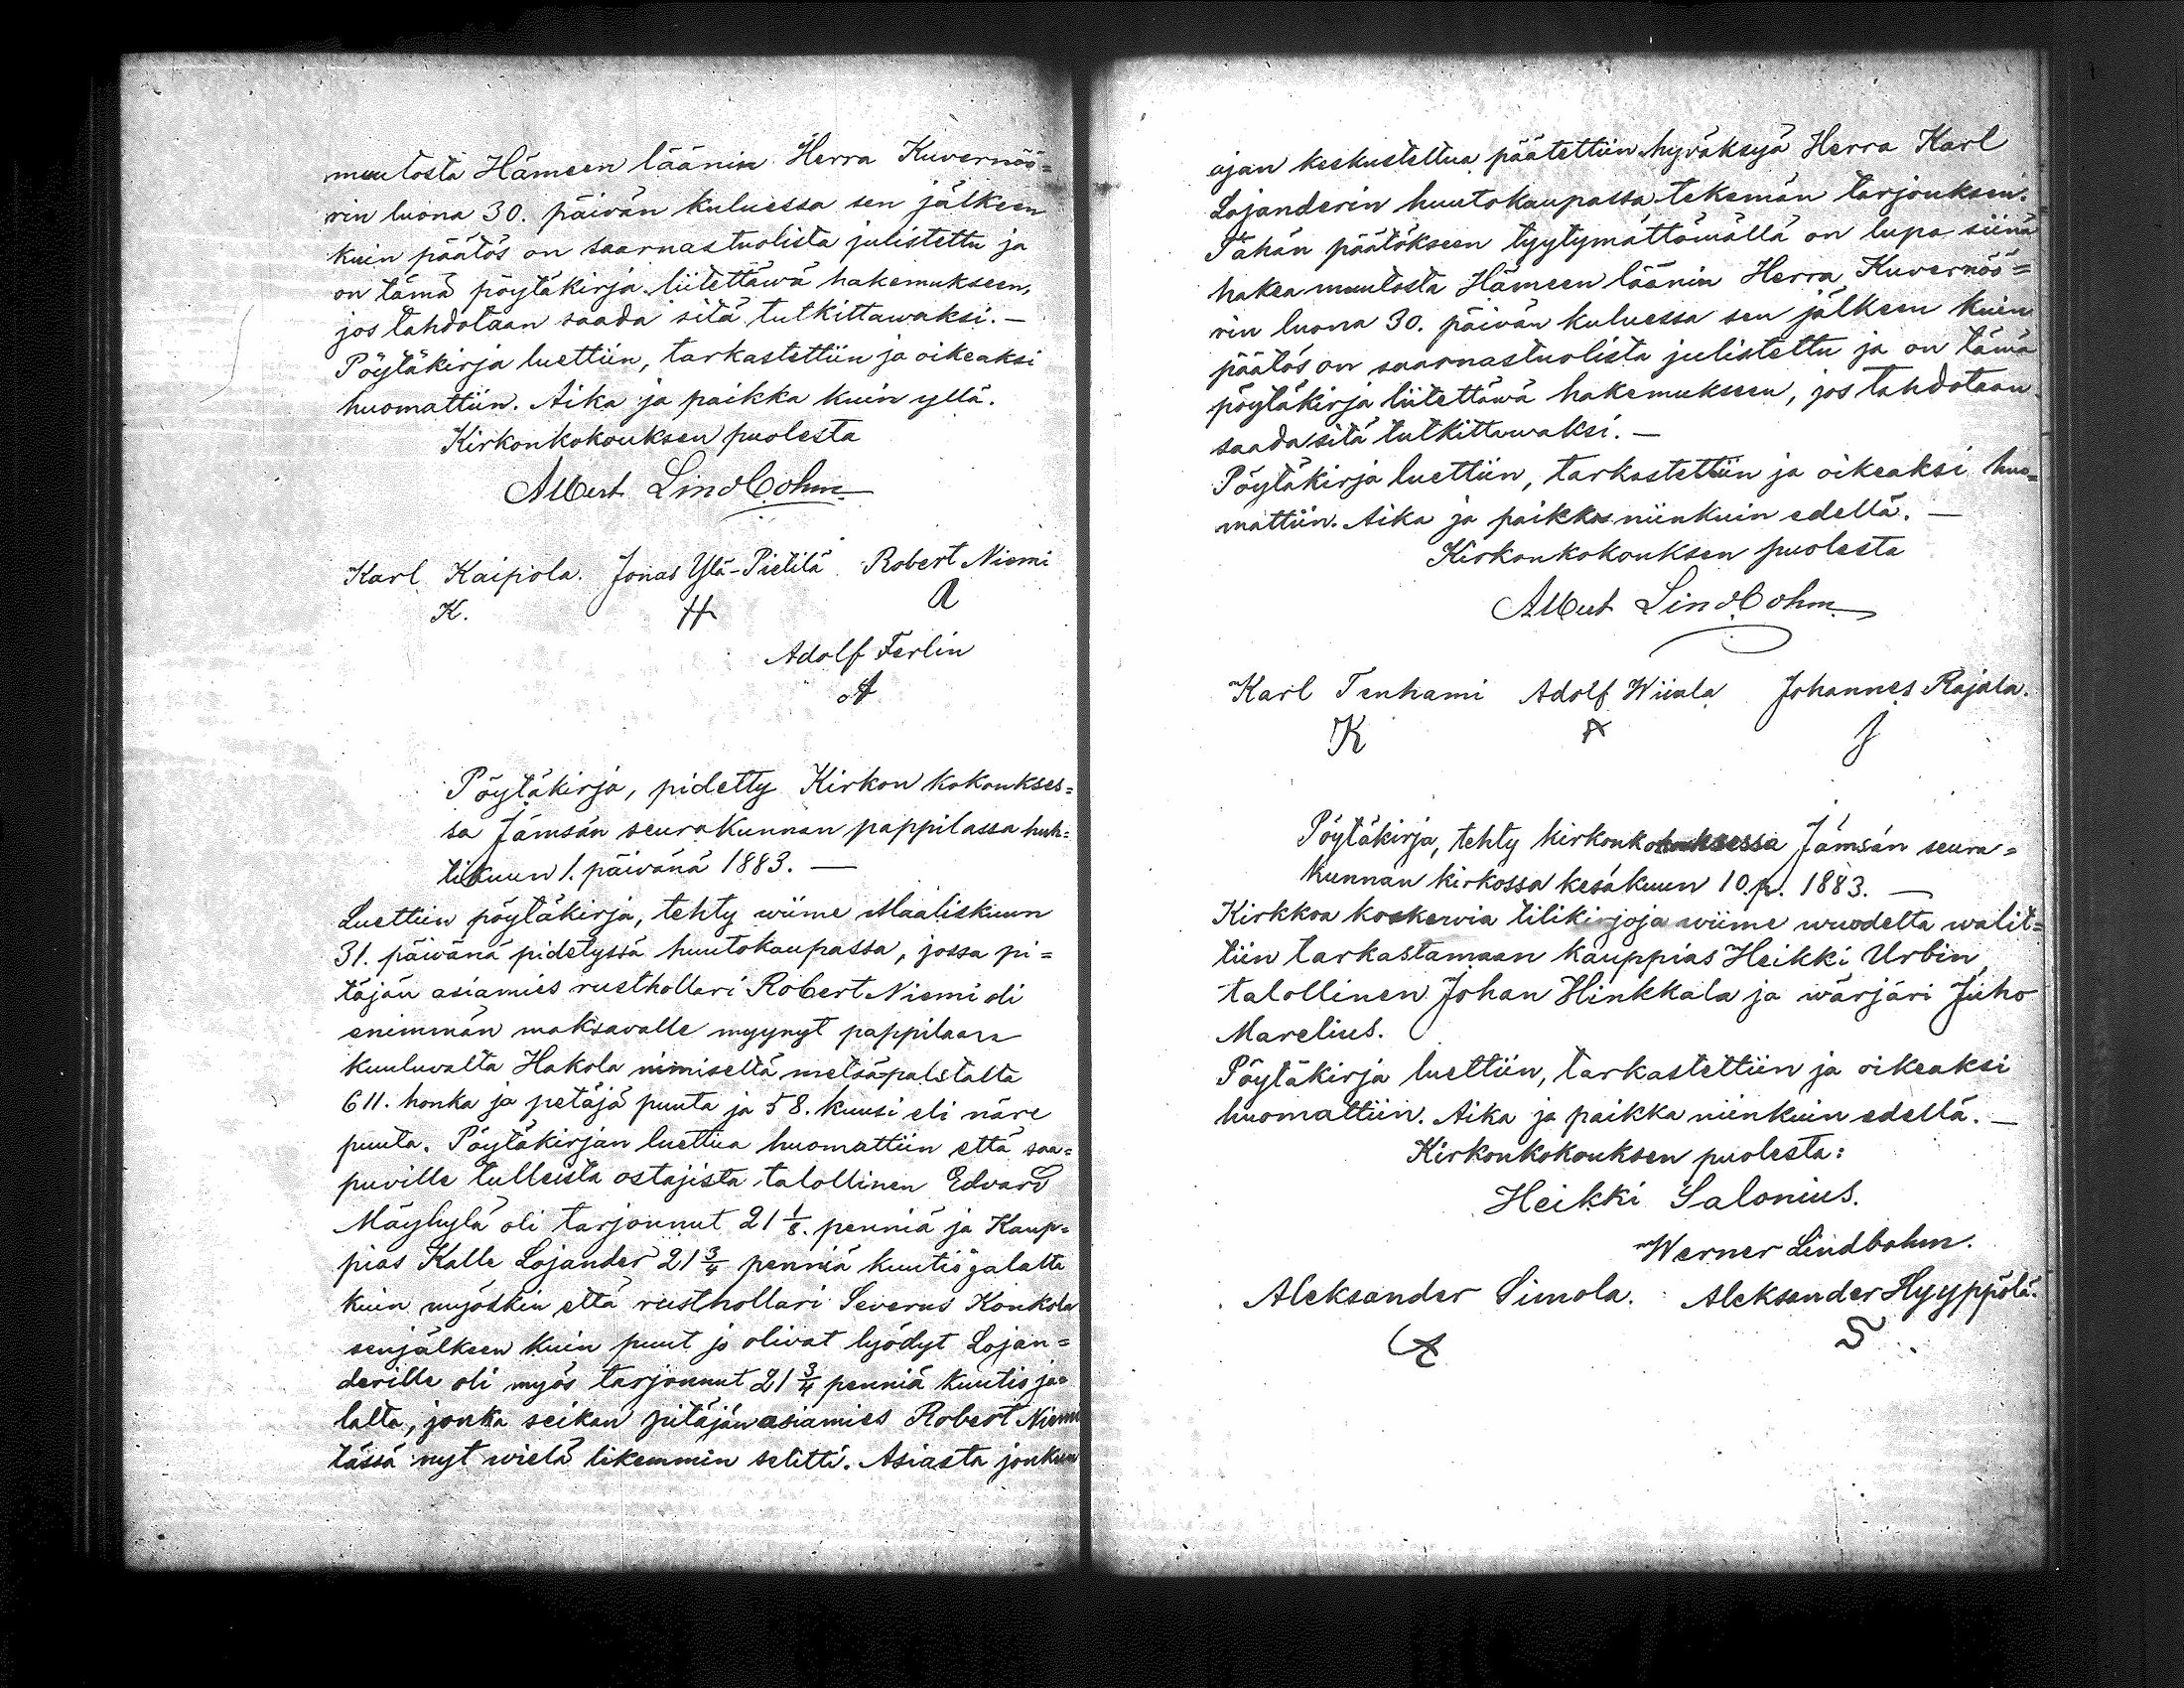 muutosta Hämeen läänin Herra Kuvernöö=
rin luona 30. päivän kuluessa sen jälkeen
kuin päätös on saarnastuolista julistettu ja
on tämä pöytäkirja liitettävä hakemukseen,
jos tahdotaan saada sitä tutkittawaksi. —
Pöytäkirja luettiin, tarkastettiin ja oikeaksi
huomattiin. Aika ja paikka kuin yllä.
Kirkonkokouksen puolesta
Albert Lindbohm
Karl Kaipola. Jonas Ylä-Pietilä Robert Niemi
K. H R
Adolf Ferlin
A
Pöytäkirja, pidetty Kirkon kokoukses=
sa Jämsän seurakunnan pappilassa huh=
tikuun 1. päivänä 1883. —
Luettiin pöytäkirja, tehty wiime Maaliskuun
31. päivänä pidetyssä huutokaupassa, jossa pi=
täjän asiamies rusthollari Robert Niemi oli
enimmän maksavalle myynyt pappilaan
kuuluvalta Hakola nimiseltä metsäpalstalta
611. honka ja petäjä puuta ja 58. kuusi eli näre
puuta. Pöytäkirjan luettua huomattiin että saa=
puville tulleista ostajista talollinen Edvard
Mäyhylä oli tarjonnut 21 1/8. penniä ja Kaup=
pias Kalle Lojander 21 3/4 penniä kuutiojalalta
kuin myöskin että rusthollari Severus Konkola
senjälkeen kuin puut jo olivat lyödyt Lojan=
derille oli myös tarjonnut 21 3/4 penniä kuutioja=
lalta, jonka seikan pitäjän asiamies Robert Niemi
tässä nyt wielä likemmin selitti. Asiasta jonkun
ajan keskusteltua päätettiin hyväksyä Herra Karl
Lojanderin huutokaupassa tekemän tarjouksen.
Tähän päätökseen tyytymättömällä on lupa siinä
hakea muutosta Hämeen läänin Herra Kuvernöö=
rin luona 30. päivän kuluessa sen jälkeen kuin
päätös on saarnastuolista julistettu ja on tämä
pöytäkirja liitettäwä hakemukseen, jos tahdotaan
saada sitä tutkittawaksi. —
Pöytäkirja luettiin, tarkastettiin ja oikeaksi huo=
mattiin. Aika ja paikka niinkuin edellä. —
Kirkonkokouksen puolesta
Albert Lindbohm
Karl Tenhami Adolf Wiiala Johannes Rajala.
K A J
Pöytäkirja, tehty kirkonkokouksessa Jämsän seura=
kunnan kirkossa kesäkuun 10. p. 1883. —
Kirkkoa koskewia tilikirjoja wiime wuodelta walit=
tiin tarkastamaan kauppias Heikki Urbin,
talollinen Johan Hinkkala ja wärjäri Juho
Marelius.
Pöytäkirja luettiin, tarkastettiin ja oikeaksi
huomattiin. Aika ja paikka niinkuin edellä. —
Kirkonkokouksen puolesta:
Heikki Salonius.
Werner Lindbohm.
Aleksander Simola. Aleksander Hyyppölä.
A S